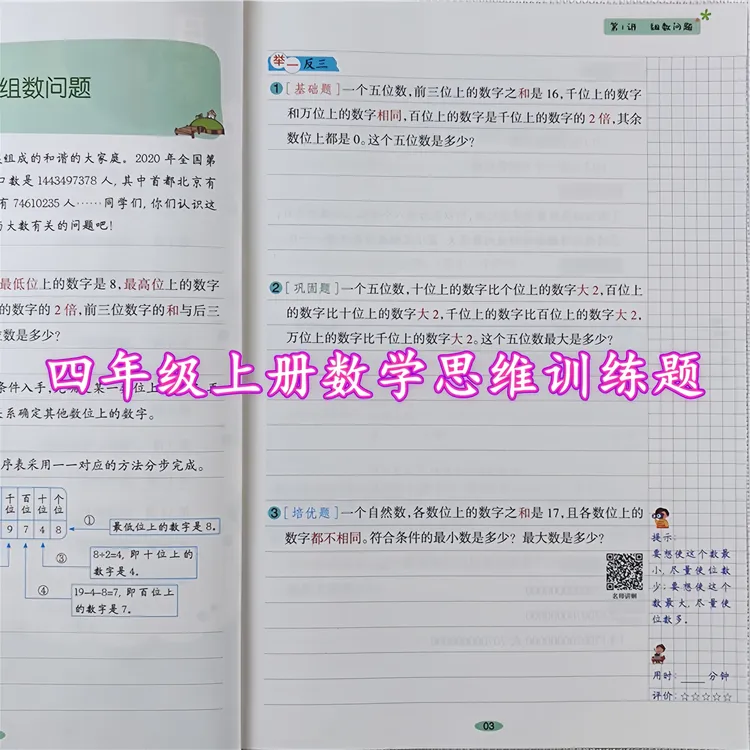 组数问题
组成的和谐的大家庭。2020年全国第
口数是1443497378人,其中首都北京有
有74610235人……同学们,你们认识这
与大数有关的问题吧!
最低位上的数字是8,最高位上的数字
的数字的2倍,前三位数字的和与后三
位数是多少?
条件入手,
关系确定其他数位上的数字。
序表采用一一对应的方法分步完成。
千位 百位 十位 个位
9 7 4 8
① 最低位上的数字是8。
③ 8÷2=4,即十位上的
数字是4。
④ 19-4-8=7,即百位上
的数字是7。
第1讲 组数问题
举一反三
①[基础题]一个五位数,前三位上的数字之和是16,千位上的数字
和万位上的数字相同,百位上的数字是千位上的数字的2倍,其余
数位上都是0。这个五位数是多少?
②[巩固题]一个五位数,十位上的数字比个位上的数字大2,百位上
的数字比十位上的数字大2,千位上的数字比百位上的数字大2,
万位上的数字比千位上的数字大2。这个五位数最大是多少?
四年级上册数学思维训练题
③[培优题]一个自然数,各数位上的数字之和是17,且各数位上的
数字都不相同。符合条件的最小数是多少?最大数是多少?
名师讲解
提示:
要想使这个数最
小,尽量使位数
少;要想使这个
数最大,尽量使
位数多。
用时:____分钟
评价:☆☆☆☆☆
03